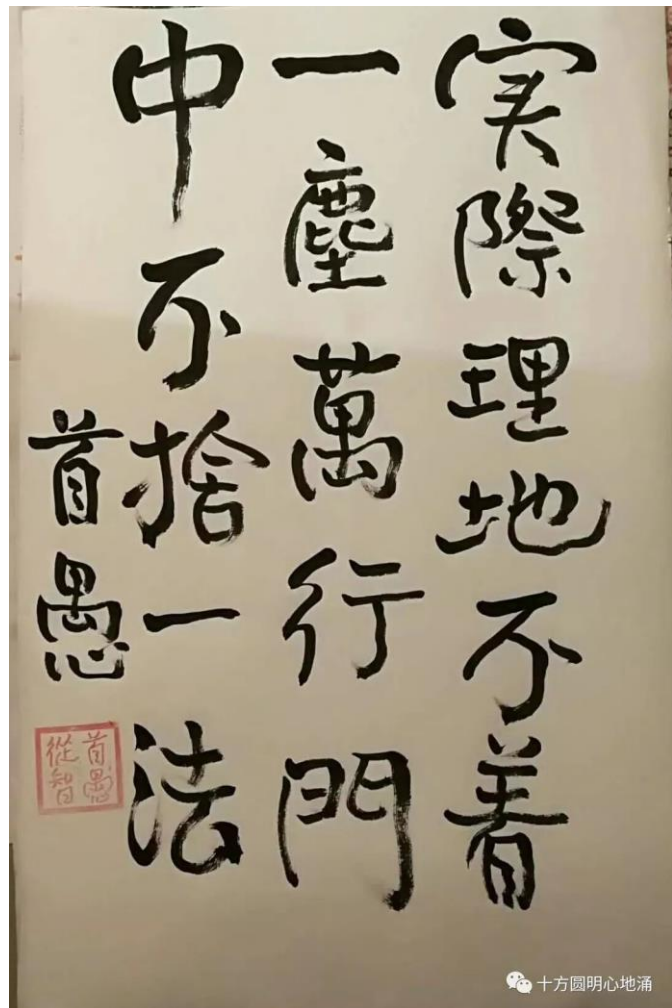 実際理地不着
一塵萬行門
中不捨一法
首愚
首愚
從智
十方圆明心地涌